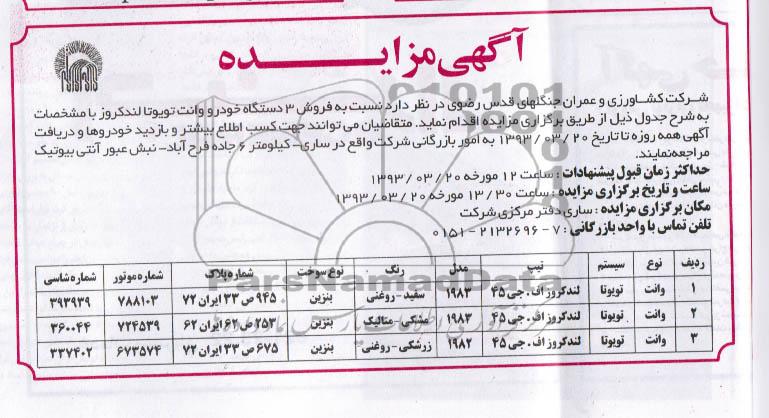 آگهی مزایــــــــده
شرکت کشاورزی و عمران جنگلهای قدس رضوی در نظر دارد نسبت به فروش ۳ دستگاه خودرو وانت تویوتا لندکروز با مشخصات
به شرح جدول ذیل از طریق برگزاری مزایده اقدام نماید. متقاضیان می توانند جهت کسب اطلاع بیشتر و بازدید خودروها و دریافت
آگهی همه روزه تا تاریخ ۲۰ / ۰۳ / ۱۳۹۳ به امور بازرگانی شرکت واقع در ساری- کیلومتر ۶ جاده فرح آباد- نبش عبور آنتی بیوتیک
مراجعه نمایند.
حداکثر زمان قبول پیشنهادات : ساعت ۱۲ مورخه ۲۰ / ۰۳ / ۱۳۹۳
ساعت و تاریخ برگزاری مزایده : ساعت ۳۰ / ۱۳ مورخه ۲۰ / ۰۳ / ۱۳۹۳
مکان برگزاری مزایده : ساری دفتر مرکزی شرکت
تلفن تماس با واحد بازرگانی : ۷ - ۲۱۳۲۶۹۶ - ۰۱۵۱
ردیف نوع سیستم تیپ مدل رنگ نوع سوخت شماره پلاک شماره موتور شماره شاسی
۱ وانت تویوتا لندکروز اف . جی ۴۵ ۱۹۸۳ سفید - روغنی بنزین ۹۴۵ ص ۳۳ ایران ۷۲ ۷۸۸۱۰۳ ۳۹۳۹۳۹
۲ وانت تویوتا لندکروز اف . جی ۴۵ ۱۹۸۳ مشکی - متالیک بنزین ۲۵۳ ص ۶۲ ایران ۶۲ ۷۲۴۵۳۹ ۳۶۰۰۴۴
۳ وانت تویوتا لندکروز اف . جی ۴۵ ۱۹۸۲ زرشکی - روغنی بنزین ۶۷۵ ص ۳۳ ایران ۷۲ ۶۷۳۵۷۴ ۳۳۷۴۰۲
ParsNamadData